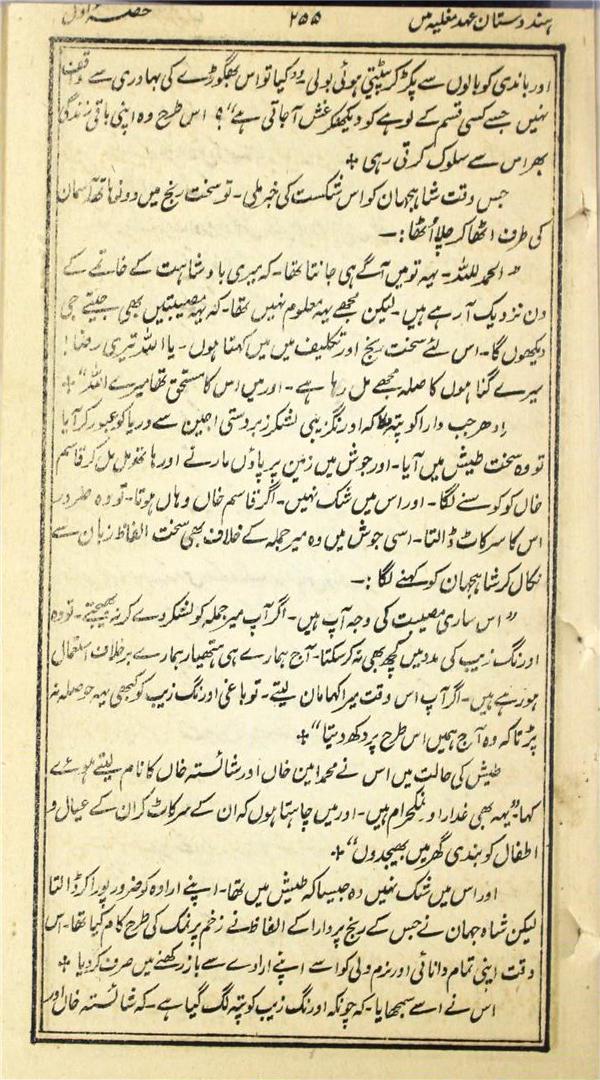 ہندوستان عہد مغلیہ میں ۲۵۵ حصہ اول
اور باندی کو بالوں سے پکڑ کر پیٹتی ہوئی بولی۔ "کیا تو اس بھگوڑے کی بہادری سے واقف
نہیں جسے کسی قسم کے لوہے کو دیکھکر غش آجاتی ہے"؟ اس طرح وہ اپنی باقی زندگی
بھر اس سے سلوک کرتی رہی ÷
جس وقت شاہجہان کو اس شکست کی خبر ملی۔ تو سخت رنج میں دونوں ہاتھ آسمان
کی طرف اٹھا کر چلا اُٹھا:۔
"الحمد للہ۔ یہ تو میں آگے ہی جانتا تھا۔ کہ میری بادشاہت کے خاتمے کے
دن نزدیک آرہے ہیں۔ لیکن مجھے یہ معلوم نہیں تھا۔ کہ یہ مصیبتیں بھی جیتے جی
دیکھوں گا۔ اس لئے سخت رنج اور تکلیف میں میں کہتا ہوں۔ یا اللہ تیری رضا!
میرے گناہوں کا صلہ مجھے مل رہا ہے۔ اور میں اس کا مستحق تھا میرے اللہ" ÷
اِدھر جب دارا کو پتہ ملا کہ اورنگزیبی لشکر زبردستی اجین سے دریا کو عبور کر آیا
تو وہ سخت طیش میں آیا۔ اور جوش میں زمین پر پاؤں مارنے اور ہاتھ مل مل کر قاسم
خاں کو کوسنے لگا۔ اور اس میں شک نہیں۔ اگر قاسم خاں وہاں ہوتا۔ تو وہ ضرور
اس کا سر کاٹ ڈالتا۔ اسی جوش میں وہ میر جملہ کے خلاف بھی سخت الفاظ زبان سے
نکال کر شاہجہان کو کہنے لگا:۔
"اس ساری مصیبت کی وجہ آپ ہیں۔ اگر آپ میر جملہ کو لشکر دے کر نہ بھیجتے۔ تو وہ
اورنگ زیب کی مدد میں کچھ بھی نہ کر سکتا۔ آج ہمارے ہی ہتھیار ہمارے برخلاف استعمال
ہو رہے ہیں۔ اگر آپ اس وقت میرا کہا مان لیتے۔ تو باغی اورنگ زیب کو کبھی یہ حوصلہ نہ
پڑتا کہ وہ آج ہمیں اس طرح پر دکھ دیتا" ÷
طیش کی حالت میں اس نے محمد امین خاں اور شائستہ خاں کا نام لیتے ہوئے
کہا۔ "یہ بھی غدار اور نمکحرام ہیں۔ اور میں چاہتا ہوں کہ ان کے سر کاٹ کر ان کے عیال و
اطفال کو بندی گھر میں بھیجدوں" ÷
اور اس میں شک نہیں وہ جیسا کہ طیش میں تھا۔ اپنے ارادہ کو ضرور پورا کر ڈالتا
لیکن شاہ جہان نے جس کے رنج پر دارا کے الفاظ نے زخم پر نمک کی طرح کام کیا تھا۔ اس
وقت اپنی تمام دانائی اور نرم ولی کو اسے اپنے ارادے سے باز رکھنے میں صرف کر دیا ÷
اس نے اسے سمجھایا۔ کہ چونکہ اورنگ زیب کو پتہ لگ گیا ہے۔ کہ شائستہ خاں اور